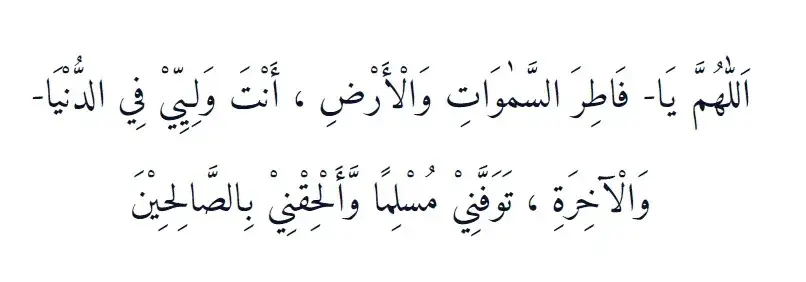 اَللّٰهُمَّ يَا- فَاطِرَ السَّمٰوَاتِ وَالْأَرْضِ ، أَنْتَ وَلِيِّيْ فِي الدُّنْيَا-
وَالْآخِرَةِ ، تَوَفَّنِيْ مُسْلِمًا وَّأَلْحِقْنِيْ بِالصَّالِحِيْنَ